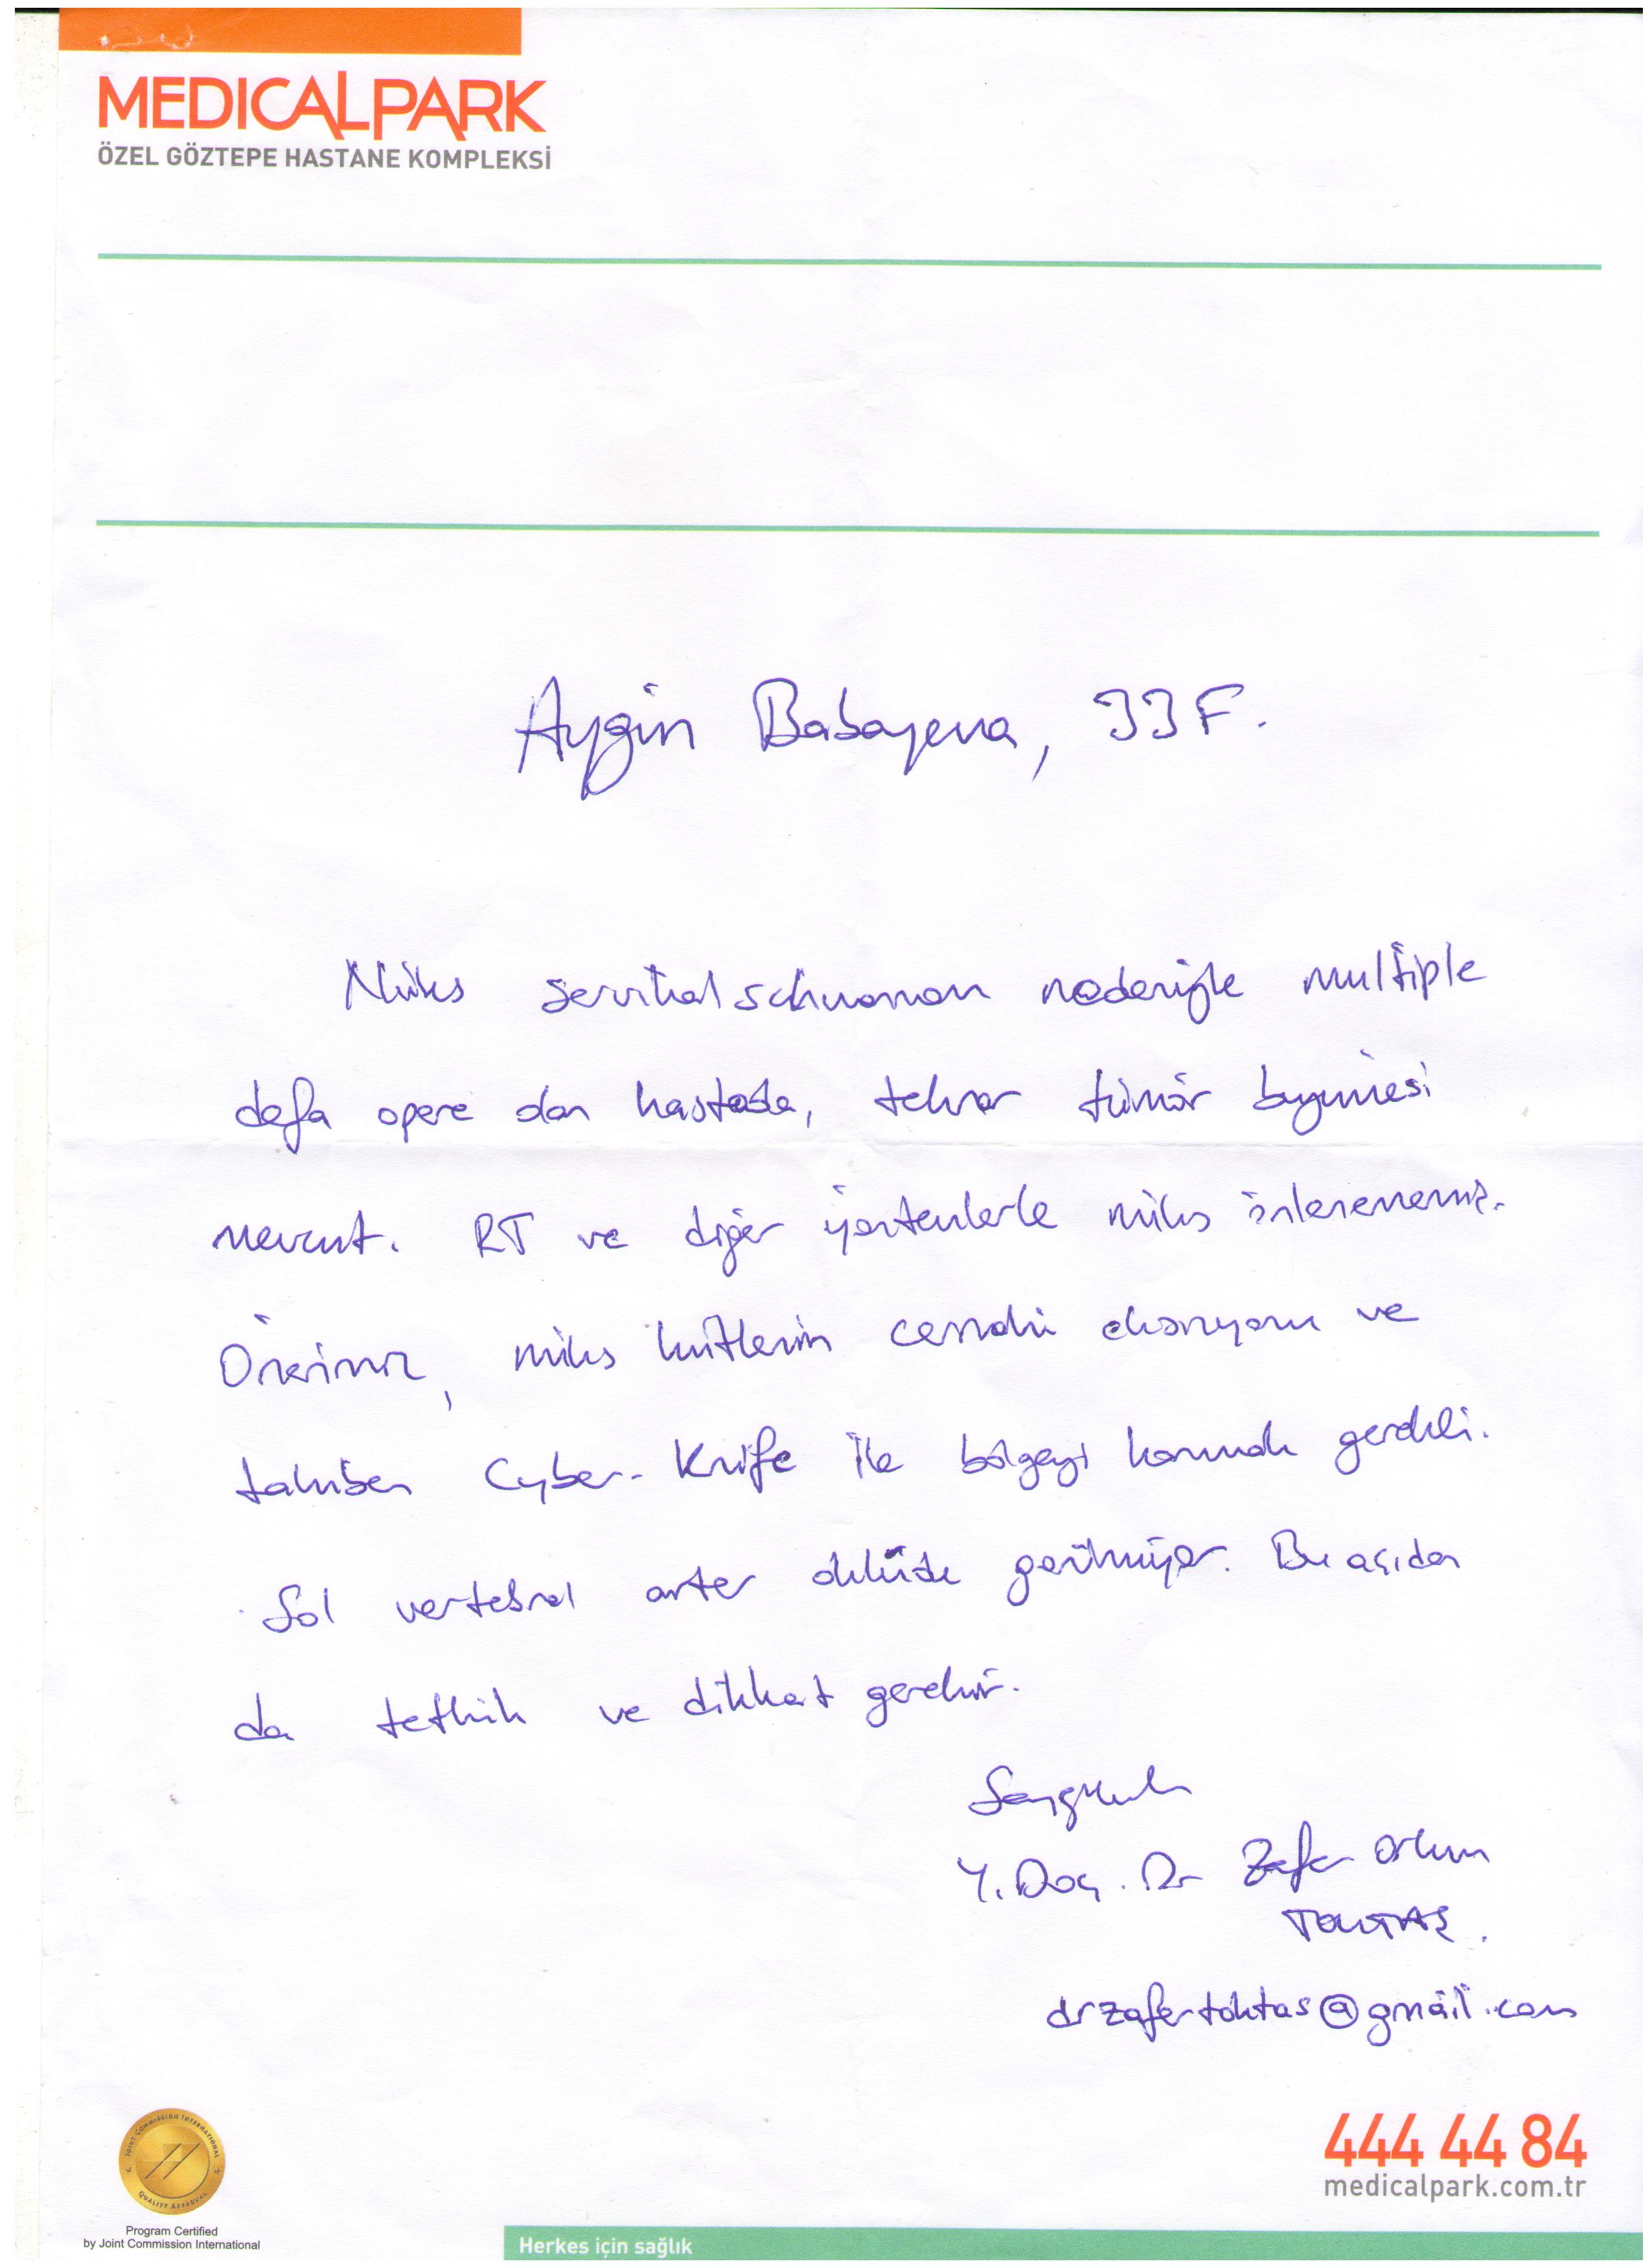 MEDICALPARK
ÖZEL GÖZTEPE HASTANE KOMPLEKSİ
Aygin Babayeva, 33 F.
Nüks servikal schwannom nedeniyle multiple
defa opere olan hastada, tekrar tümör büyümesi
mevcut. RT ve diğer yöntemlerle nüks önlenememiş.
Önerimiz, nüks kitlenin cerrahi eksizyonu ve
takiben Cyber-Knife ile bölgeyi korumak gerekli.
Sol vertebral arter oklüde görünüyor. Bu açıdan
da tetkik ve dikkat gerekir.
Saygılarımla
Y. Doç. Dr Zafer Orkun
TOKTAŞ.
drzafertoktas@gmail.com
JOINT COMMISSION INTERNATIONAL
QUALITY APPROVAL
Program Certified
by Joint Commission International
444 44 84
medicalpark.com.tr
Herkes için sağlık